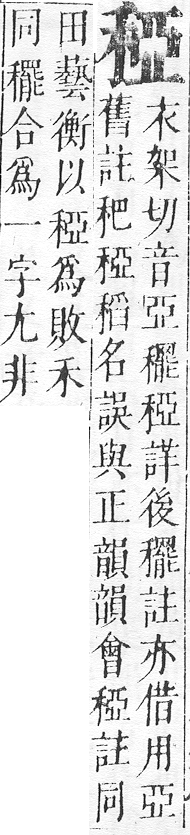 稏
衣架切音亞䆉稏詳後䆉註亦借用亞
舊註䄻稏稻名誤與正韻韻會稏註同
田藝衡以稏爲敗禾
同䆉合爲一字尤非